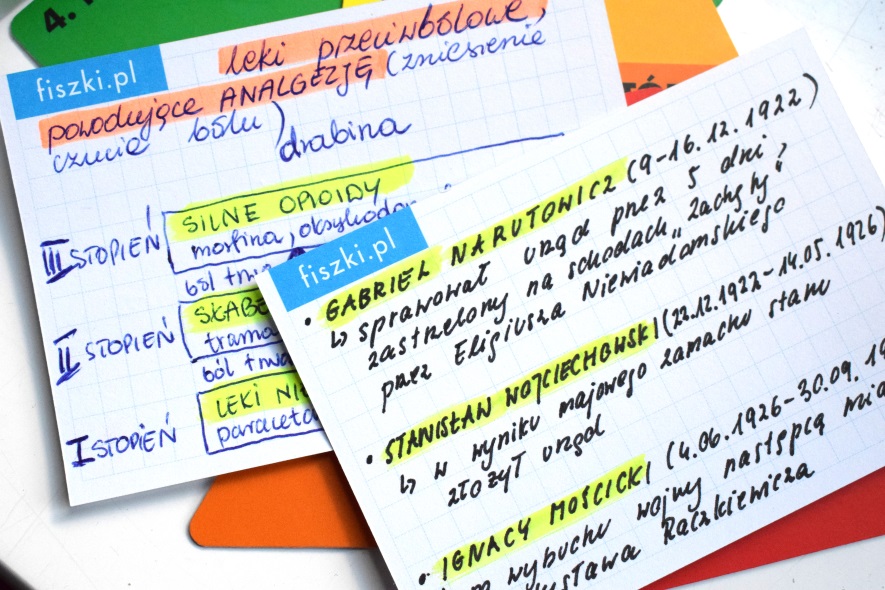 4.
fiszki.pl
leki przeciwbólowe,
powodujące ANALGEZJĘ (zniesienie
czucia bólu)
drabina
III STOPIEŃ
SILNE OPIOIDY
morfina, oksykodon
ból trwa
II STOPIEŃ
SŁABE
trama
ból trwa
I STOPIEŃ
LEKI NI
paraceta
fiszki.pl
• GABRIEL NARUTOWICZ (9-16.12.1922)
↳ sprawował urząd przez 5 dni,
zastrzelony na schodach „Zachęty"
przez Eligiusza Niewiadomskiego
• STANISŁAW WOJCIECHOWSKI (22.12.1922-14.05.1926)
↳ w wyniku majowego zamachu stanu
złożył urząd
• IGNACY MOŚCICKI (4.06.1926-30.09.19
po wybuchu wojny następcą mia
Raczkiewicza